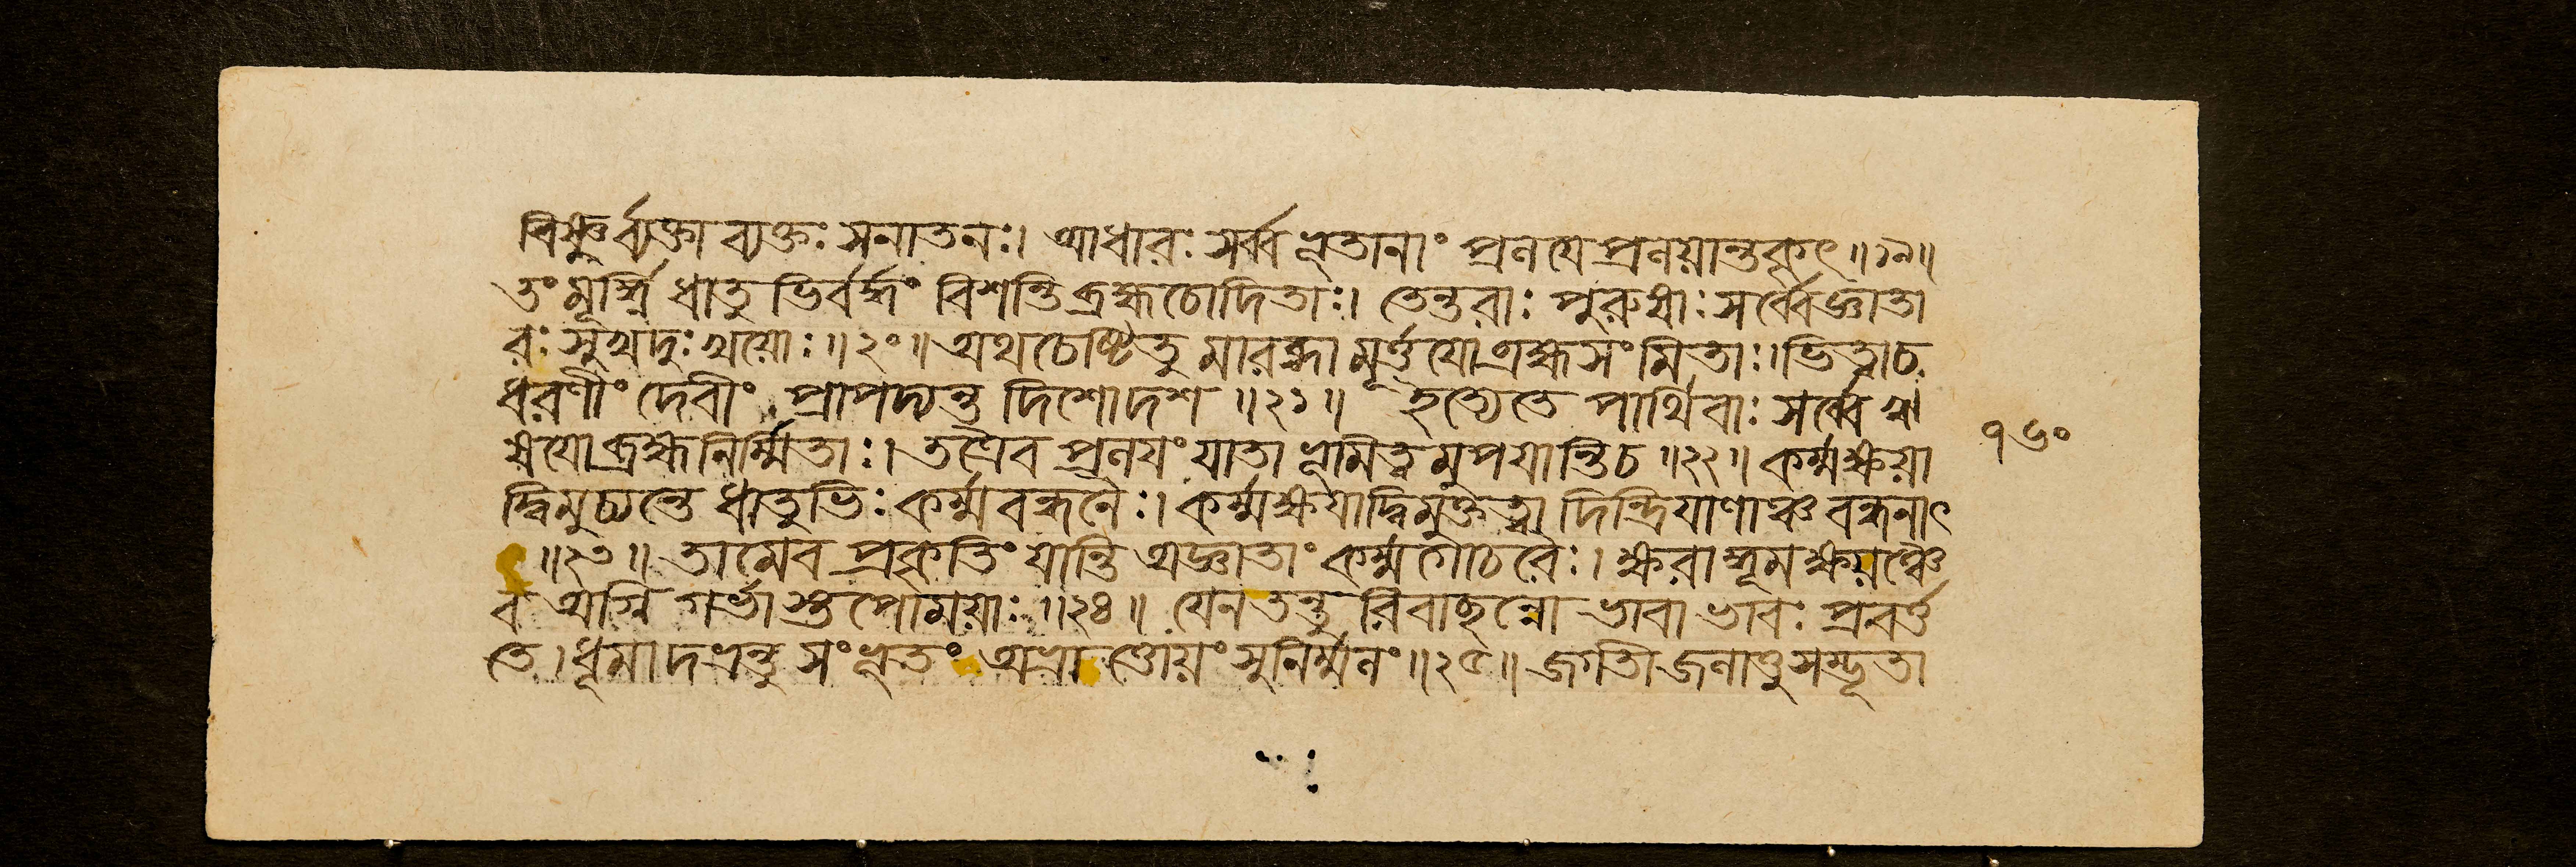 বিষ্ণুর্ব্যক্তা ব্যক্তঃ সনাতনঃ। আধারঃ সর্ব্ব ভূতানাং প্রলয়ে প্রলয়ান্তকৃৎ॥১৯॥
তং মূর্ত্তি ধাতু ভির্বর্দ্ধং বিশন্তি ব্রহ্মচোদিতাঃ। তেন্তরাঃ পুরুষাঃ সর্ব্বে জ্ঞাতা
রঃ সুখদুঃখয়োঃ॥২০॥ অথ চেষ্টিতু মারব্ধা মূর্ত্তয়ো ব্রহ্মসংমিতাঃ। ভিত্বাচ
ধরণীং দেবীং প্রাপদ্যন্ত দিশোদশ॥২১॥ ইত্যেতে পার্থিবাঃ সর্ব্বে ঋ
ষয়ো ব্রহ্মনির্ম্মিতাঃ। তত্রৈব প্রলয়ং যাতা ভূমিত্ব মুপয়ান্তিচ॥২২॥ কর্ম্মক্ষয়া
দ্বিমুচ্যন্তে ধাতুভিঃ কর্ম্মবন্ধনৈঃ। কর্ম্মক্ষয়াদ্বিমুক্তত্বা দিন্দ্রিয়াণাঞ্চ বন্ধনাৎ
॥২৩॥ তামেব প্রকৃতিং যান্তি অজ্ঞাতাং কর্ম্মগোচরৈঃ। ক্ষরাদ্ধূমক্ষয়ঞ্চৈ
ব অগ্নি গর্ভাস্তপোময়াঃ॥২৪॥ যেন তন্তু রিবাচ্ছন্নো ভাবা ভাবঃ প্রবর্ত্ত
তে। ধূমাদভ্রন্তু সংভূতং অভ্রাত্তোয়ং সুনির্ম্মলং॥২৫॥ জগতী জলাত্তু সম্ভূতা
৭৬০